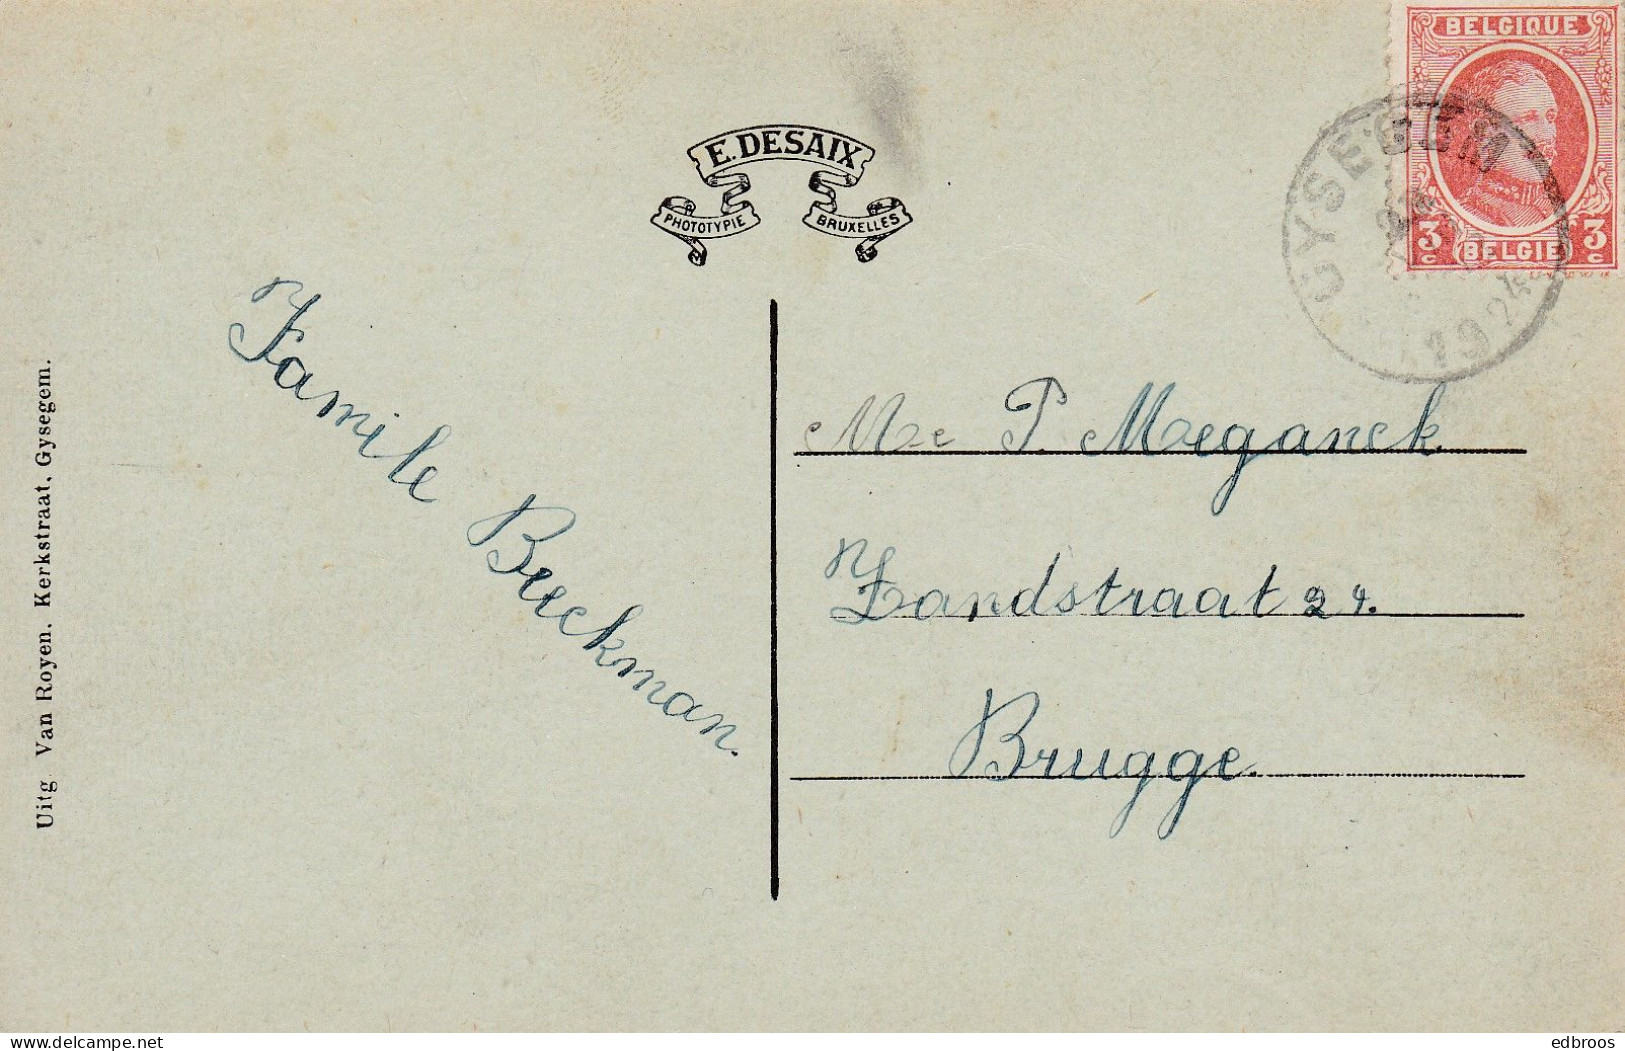 E. DESAIX
PHOTOTYPIE
BRUXELLES
BELGIQUE
3c BELGIE 3c
GYSEGEM
1924
Uitg Van Royen, Kerkstraat, Gysegem.
Familie Beeckman.
Me P. Meeganck
Zandstraat 24.
Brugge.
edbroos